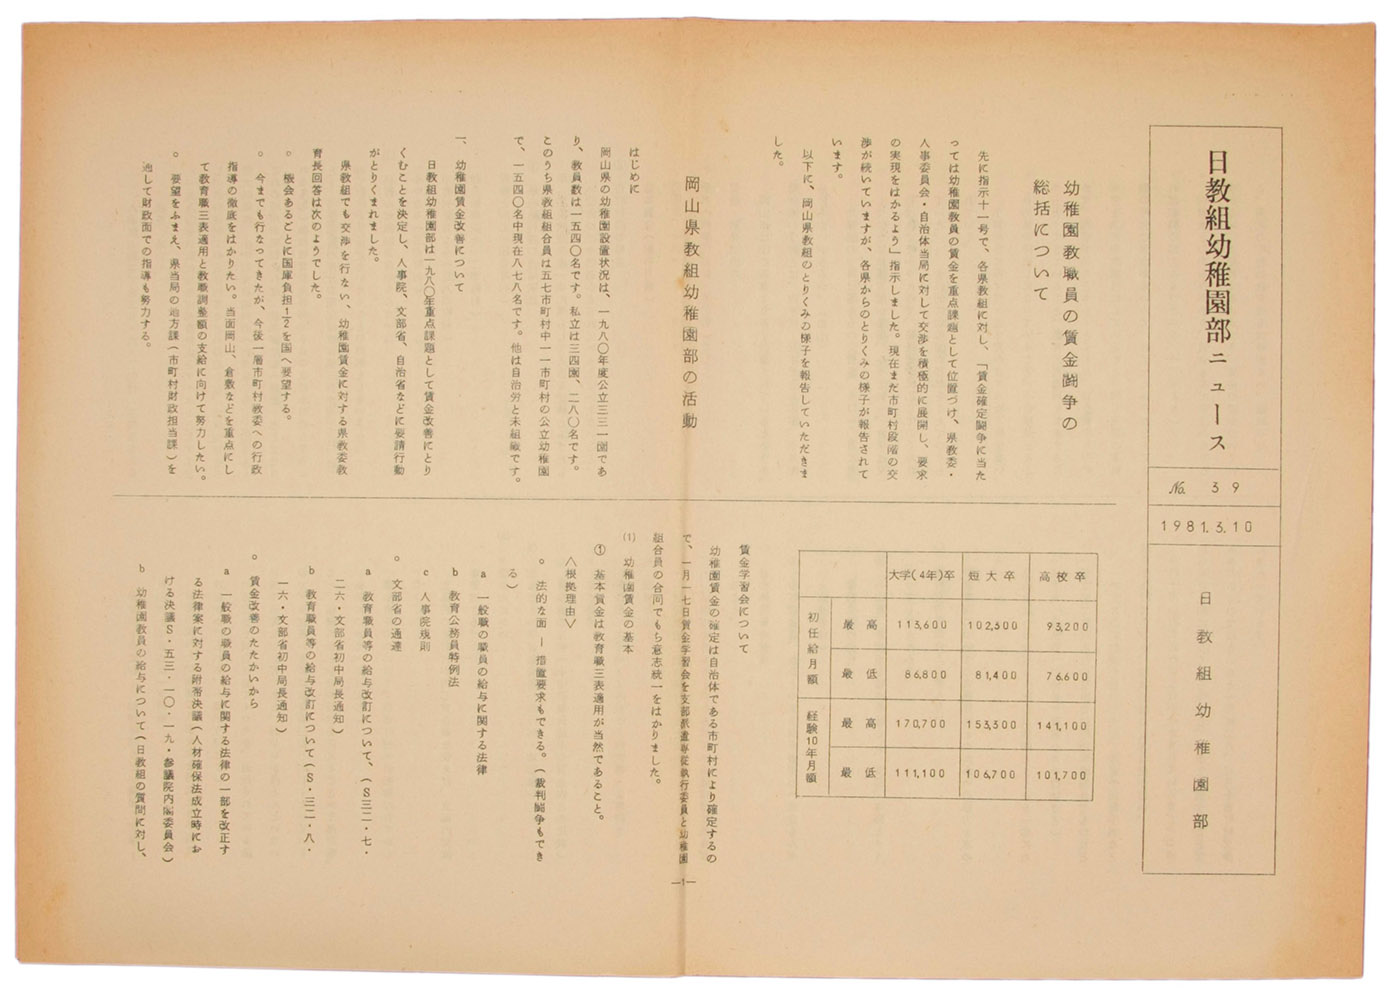 日教組幼稚園部ニュース
No. 39
1981.3.10
日教組幼稚園部
幼稚園教職員の賃金闘争の
総括について
先に指示十一号で、各県教組に対し、「賃金確定闘争に当た
っては幼稚園教員の賃金を重点課題として位置づけ、県教委・
人事委員会・自治体当局に対して交渉を積極的に展開し、要求
の実現をはかるよう」指示しました。現在まだ市町村段階の交
渉が続いていますが、各県からのとりくみの様子が報告されて
います。
以下に、岡山県教組のとりくみの様子を報告していただきま
した。
岡山県教組幼稚園部の活動
はじめに
岡山県の幼稚園設置状況は、一九八〇年度公立三三一園であ
り、教員数は一五四〇名です。私立は三四園、二八〇名です。
このうち県教組組合員は五七市町村中一一市町村の公立幼稚園
で、一五四〇名中現在八七八名です。他は自治労と未組織です。
一、幼稚園賃金改善について
日教組幼稚園部は一九八〇年重点課題として賃金改善にとり
くむことを決定し、人事院、文部省、自治省などに要請行動
がとりくまれました。
県教組でも交渉を行ない、幼稚園賃金に対する県教委教
育長回答は次のようでした。
○ 機会あるごとに国庫負担1/2を国へ要望する。
○ 今までも行なってきたが、今後一層市町村教委への行政
指導の徹底をはかりたい。当面岡山、倉敷などを重点にし
て教育職三表適用と教職調整額の支給に向けて努力したい。
○ 要望をふまえ、県当局の地方課(市町村財政担当課)を
通して財政面での指導も努力する。
大学(4年)卒 短大卒 高校卒
初任給月額 最高 113,600 102,500 93,200
最低 86,800 81,400 76,600
経験10年月額 最高 170,700 153,300 141,100
最低 111,100 106,700 101,700
賃金学習会について
幼稚園賃金の確定は自治体である市町村により確定するの
で、一月一七日賃金学習会を支部派遣専従執行委員と幼稚園
組合員の合同でもち意志統一をはかりました。
(1) 幼稚園賃金の基本
① 基本賃金は教育職三表適用が当然であること。
〈根拠理由〉
○ 法的な面 ー 措置要求もできる。(裁判闘争もでき
る)
a 一般職の職員の給与に関する法律
b 教育公務員特例法
c 人事院規則
○ 文部省の通達
a 教育職員等の給与改訂について、(S三二・七・
二六・文部省初中局長通知)
b 教育職員等の給与改訂について(S・三二・八・
一六・文部省初中局長通知)
○ 賃金改善のたたかいから
a 一般職の職員の給与に関する法律の一部を改正す
る法律案に対する附帯決議(人材確保法成立時にお
ける決議S・五三・一〇・一九・参議院内閣委員会)
b 幼稚園教員の給与について(日教組の質問に対し、
—1—